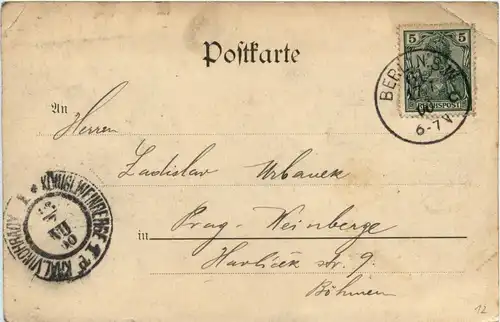 Postkarte
5
REICHSPOST
BERLIN S.W.
6-7V
An
Herren
Ladislav Urbanek
in Prag-Weinberge
Havlíček str. 9.
Böhmen
KÖNIGL. WEINBERGE
KRÁL. VINOHRADY
12